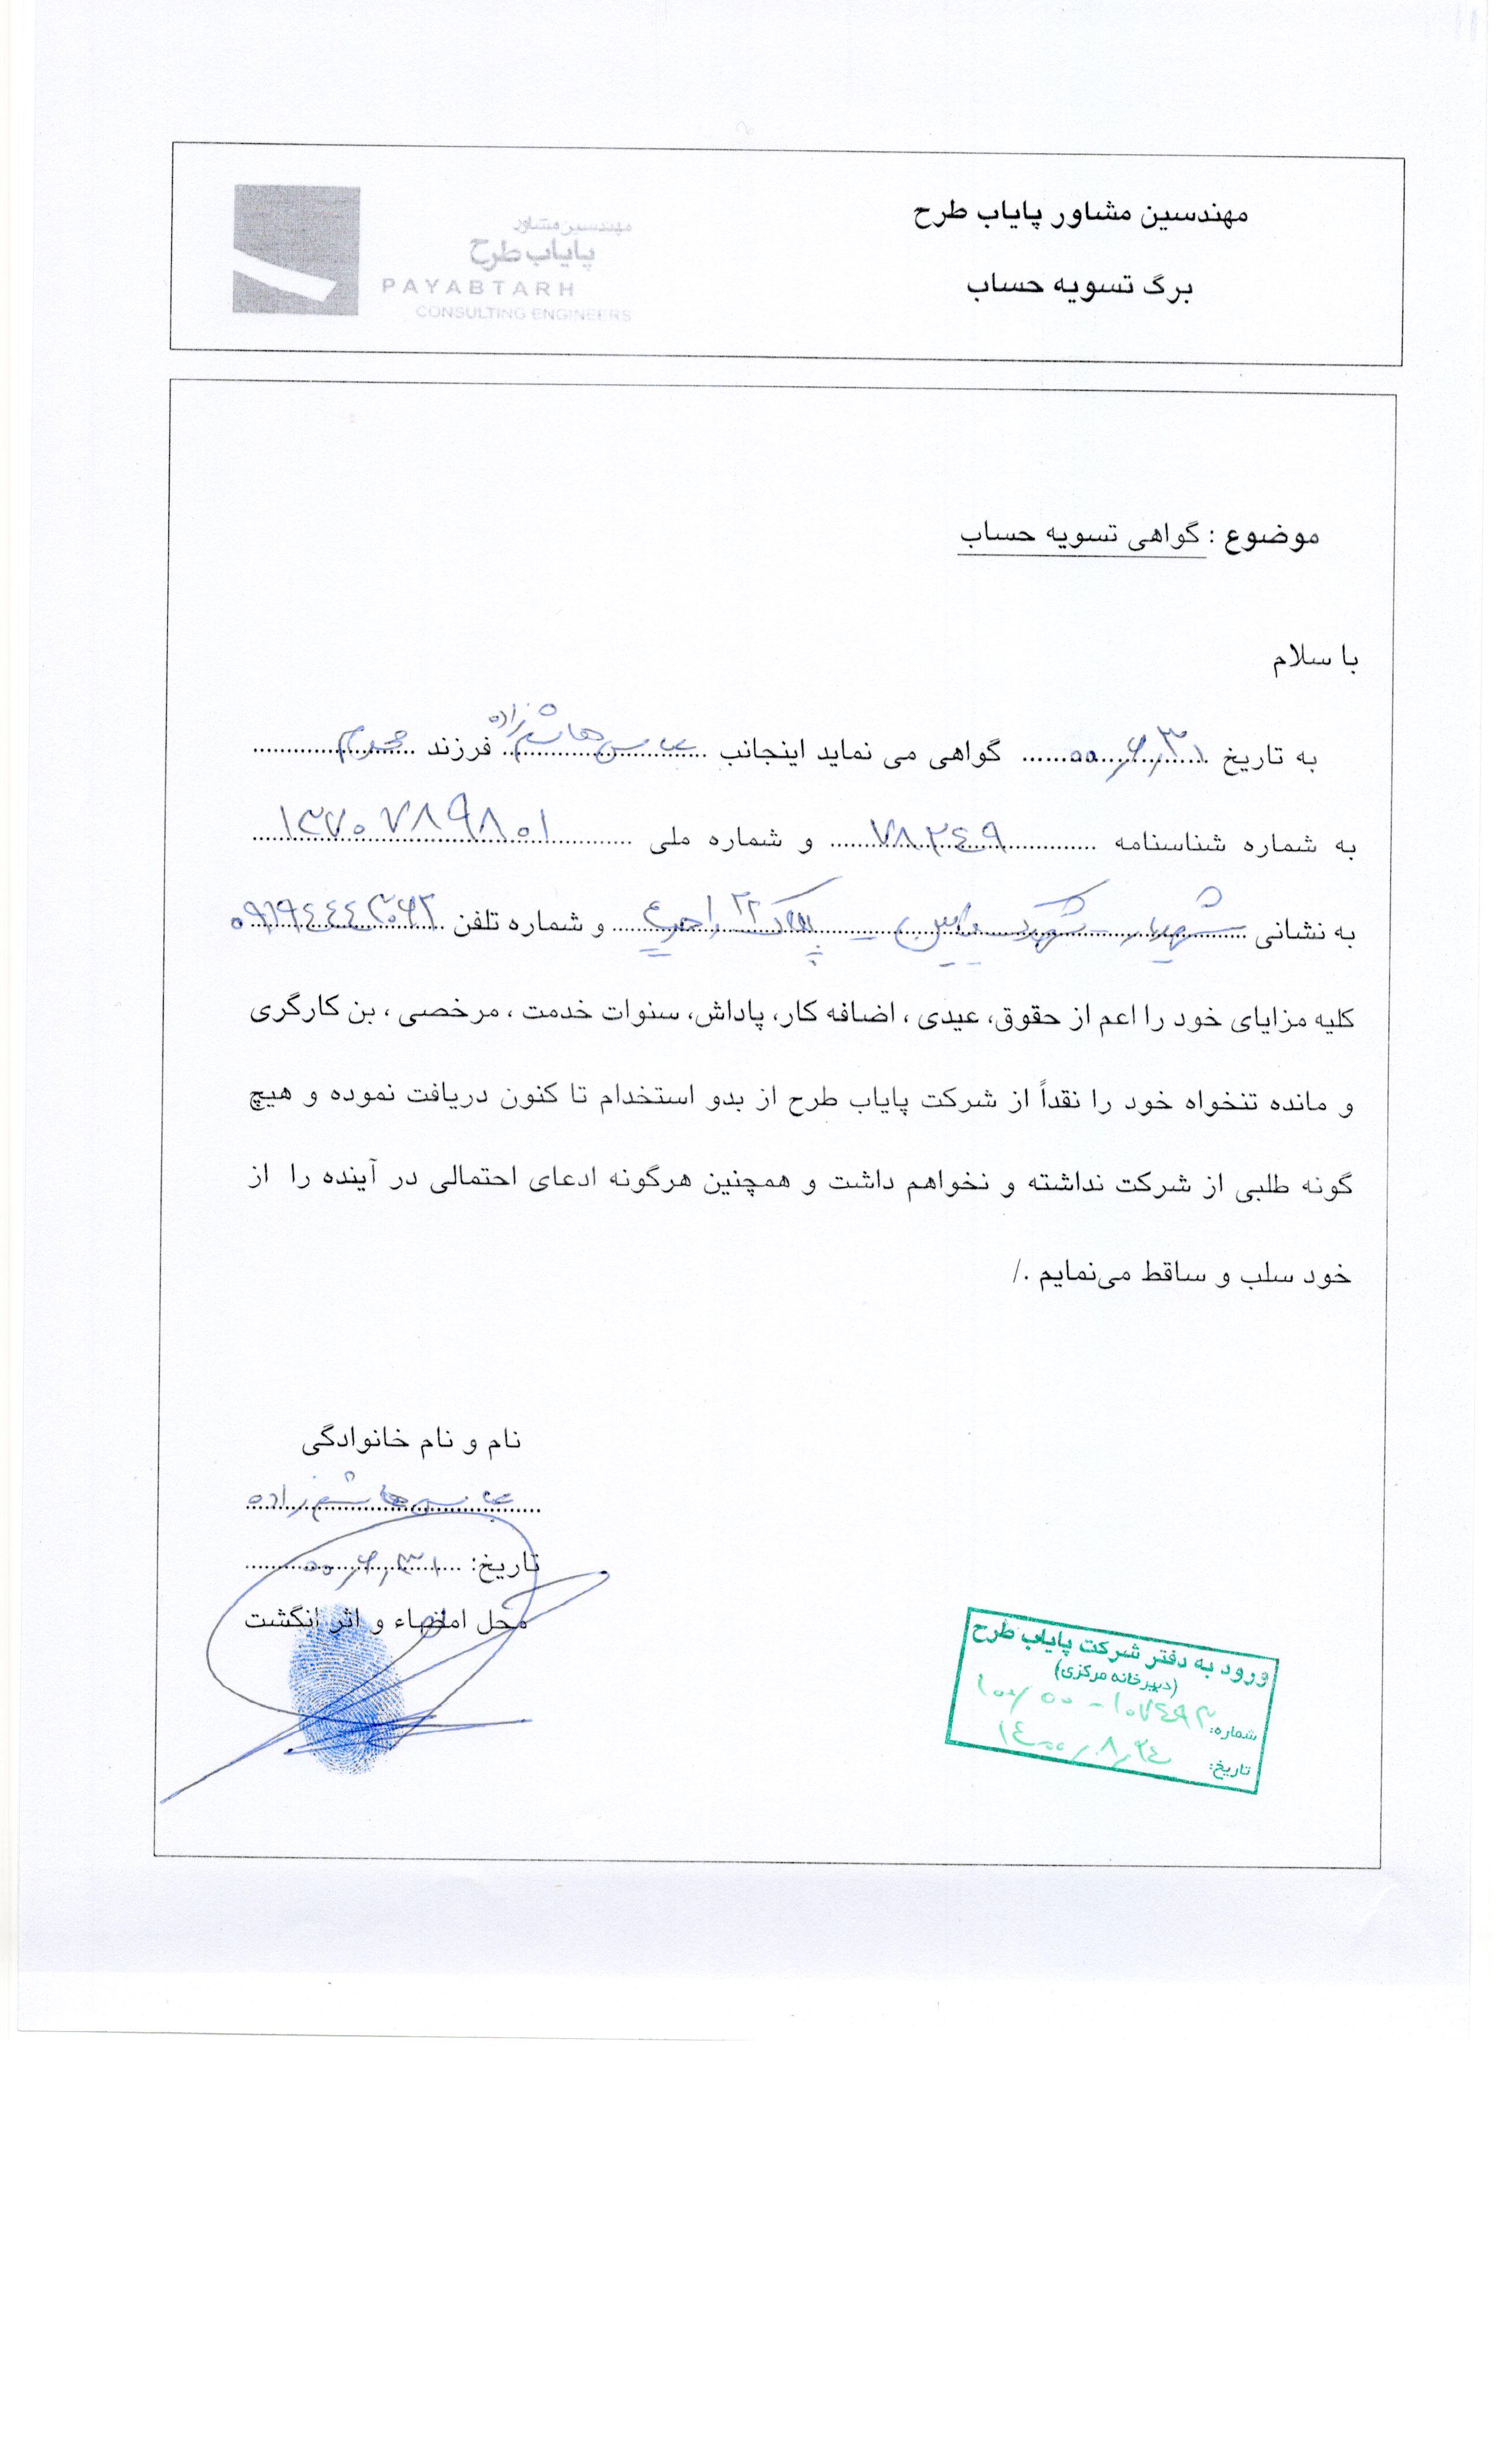 مهندسین مشاور پایاب طرح
برگ تسویه حساب
مهندسین مشاور
پایاب طرح
PAYABTARH
CONSULTING ENGINEERS
موضوع : گواهی تسویه حساب
با سلام
به تاریخ ۰۰/۶/۳۱ گواهی می نماید اینجانب عباس هاشم زاده فرزند محرم
به شماره شناسنامه ۷۸۲٤۹ و شماره ملی ۱۳۷۰۷۸۹۸۰۱
به نشانی شهریار - شهرک - پلاک ۲۲ و شماره تلفن ۰۹۱۹٤٤٤۳۰۶۲
کلیه مزایای خود را اعم از حقوق، عیدی ، اضافه کار، پاداش، سنوات خدمت ، مرخصی ، بن کارگری
و مانده تنخواه خود را نقداً از شرکت پایاب طرح از بدو استخدام تا کنون دریافت نموده و هیچ
گونه طلبی از شرکت نداشته و نخواهم داشت و همچنین هرگونه ادعای احتمالی در آینده را از
خود سلب و ساقط می‌نمایم ./
نام و نام خانوادگی
عباس هاشم زاده
تاریخ: ۰۰/۶/۳۱
محل امضاء و اثر انگشت
ورود به دفتر شرکت پایاب طرح
(دبیرخانه مرکزی)
شماره: ۱۰۰/۰۰-۱۰۷٤۹۳
تاریخ: ۱٤۰۰/۰۸/۲٤